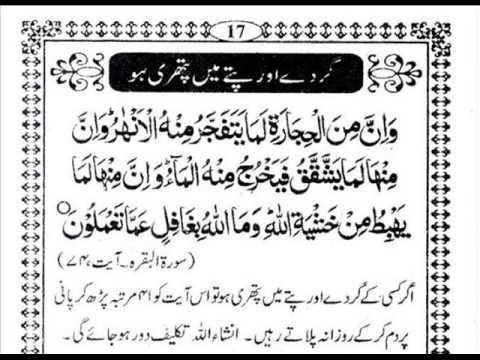 17
گردے اور پتے میں پتھری ہو
وَاِنَّ مِنَ الْحِجَارَةِ لَمَا يَتَفَجَّرُ مِنْهُ الْاَنْهٰرُ وَاِنَّ
مِنْهَا لَمَا يَشَّقَّقُ فَيَخْرُجُ مِنْهُ الْمَآءُ وَاِنَّ مِنْهَا لَمَا
يَهْبِطُ مِنْ خَشْيَةِ اللّٰهِ وَمَا اللّٰهُ بِغَافِلٍ عَمَّا تَعْمَلُوْنَ ۝
(سورۃ البقرہ۔ آیت، ۷۴)
اگر کسی کے گردے اور پتے میں پتھری ہو تو اس آیت کو ۴۱ مرتبہ پڑھ کر پانی
پر دم کر کے روزانہ پلاتے رہیں۔ انشاء اللہ تکلیف دور ہو جائے گی۔